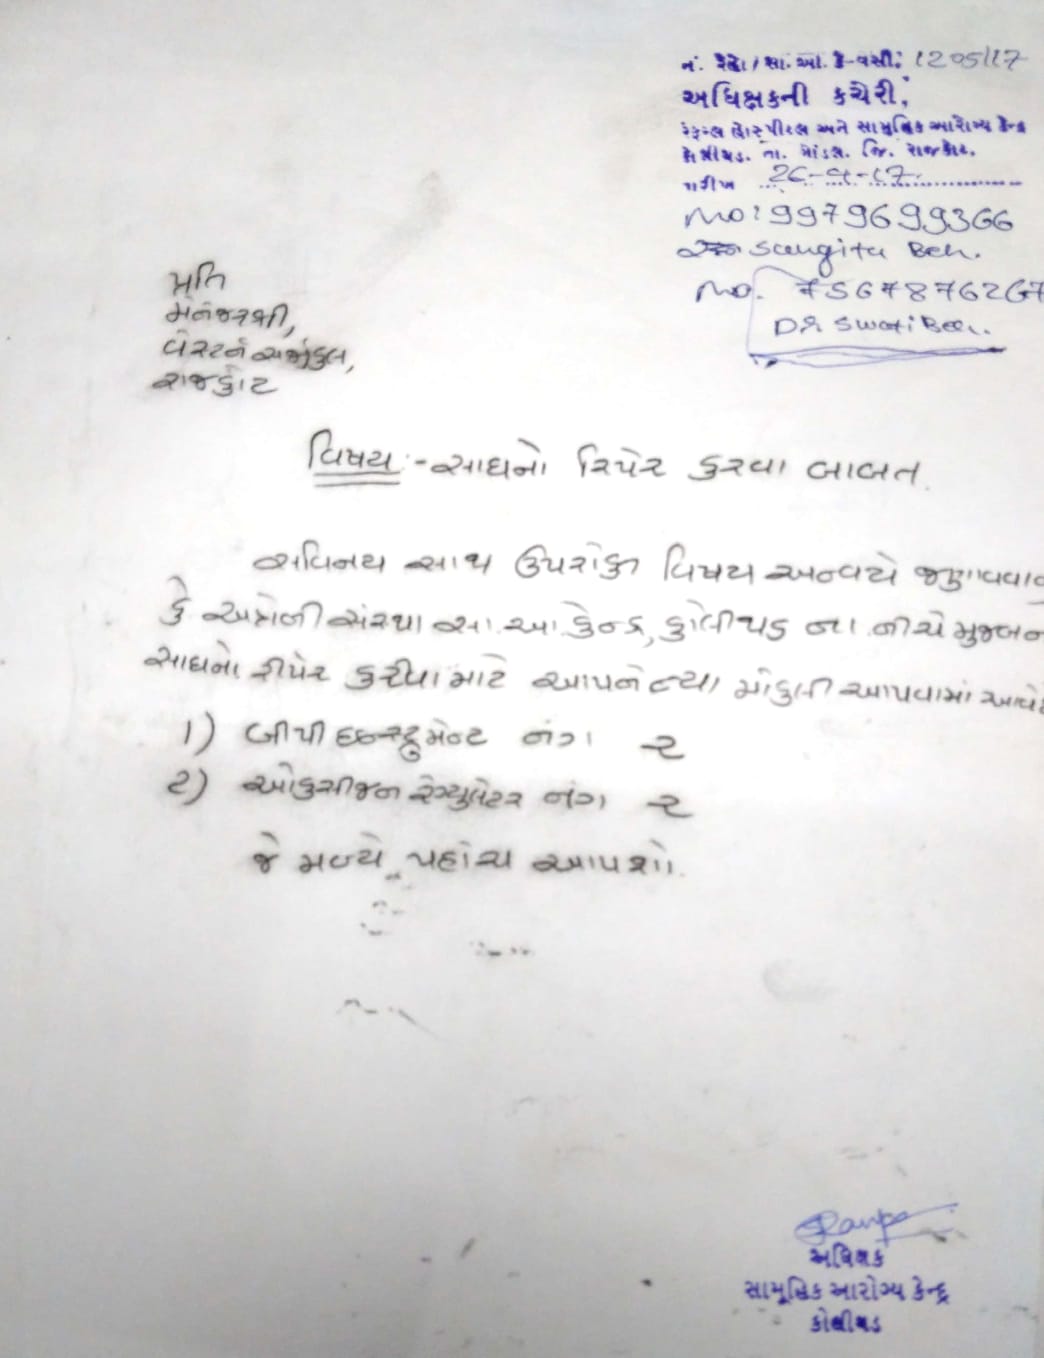 નં. રેહો/સા.આ.કે-વસી: 1205/17
અધિક્ષકની કચેરી,
રેફરલ હોસ્પીટલ અને સામુહિક આરોગ્ય કેન્દ્ર
કોલીથડ. તા. ગોંડલ. જિ. રાજકોટ.
તારીખ 26-9-17
mo: 9979699366
Sangita Ben.
mo. 7567876267
DR Swati Ben.
પ્રતિ
મેનેજરશ્રી,
વેસ્ટર્ન સર્જીકલ,
રાજકોટ
વિષય :- સાધનો રિપેર કરવા બાબત.
સવિનય સાથ ઉપરોક્ત વિષય અન્વયે જણાવવાનું
કે અત્રેની સંસ્થા સા.આ.કેન્દ્ર, કોલીથડ ના નીચે મુજબના
સાધનો રીપેર કરીવા માટે આપને ત્યા મોકલી આપવામાં આવેછે
1) બીપી ઇન્સ્ટ્રુમેન્ટ નંગ -૨
૨) ઓકસીજન રેગ્યુલેટર નંગ -૨
જે મળ્યે પહોંચ આપશો.
અધિક્ષક
સામૂહિક આરોગ્ય કેન્દ્ર
કોલીથડ